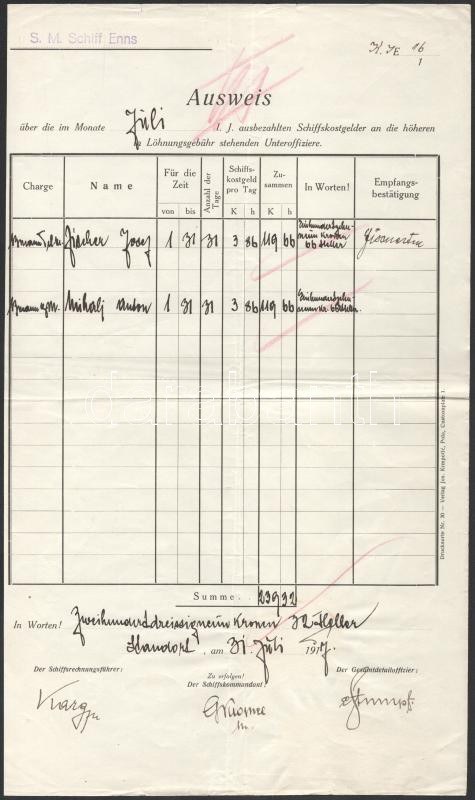 S. M. Schiff Enns
Ausweis
über die im Monate Juli l. J. ausbezahlten Schiffskostgelder an die höheren
in Löhnungsgebühr stehenden Unteroffiziere.
Charge Name Für die Zeit von bis Anzahl der Tage Schiffskostgeld pro Tag K h Zusammen K h In Worten! Empfangsbestätigung
Fischer Josef 1 31 31 3 86 119 66 Einhundertzehnneun Kronen 66 Heller
Mihalj Anton 1 31 31 3 86 119 66
darabanth
Summe. 239 32
In Worten! Zweihundertdreissigneun Kronen 32 Heller
Standort, am 31. Juli 1917.
Der Schiffsrechnungsführer:
Zu erfolgen!
Der Schiffskommandant:
Der Gesamtdetailoffizier:
Drucksorte Nr. 30 — Verlag Jos. Krmpotić, Pola, Custozaplatz 1.